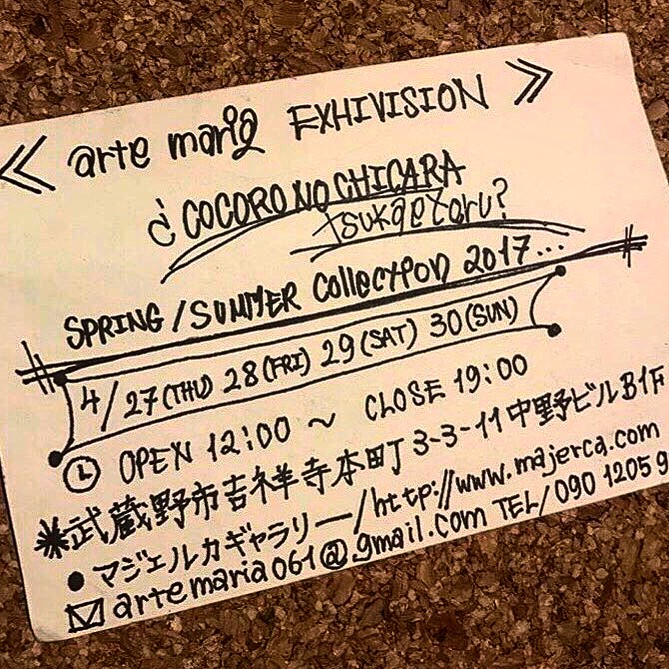 ≪ arte maria EXHIVISION ≫
¿COCORO NO CHICARA
tsukaetoru?
SPRING/SUMMER Collection 2017...
4/27(THU) 28(FRI) 29(SAT) 30(SUN)
OPEN 12:00 ~ CLOSE 19:00
武蔵野市吉祥寺本町丁3-3-11中野ビルB1F
●マジェルカギャラリー/http://www.majerca.com
artemaria061@gmail.com TEL/090 1205 9